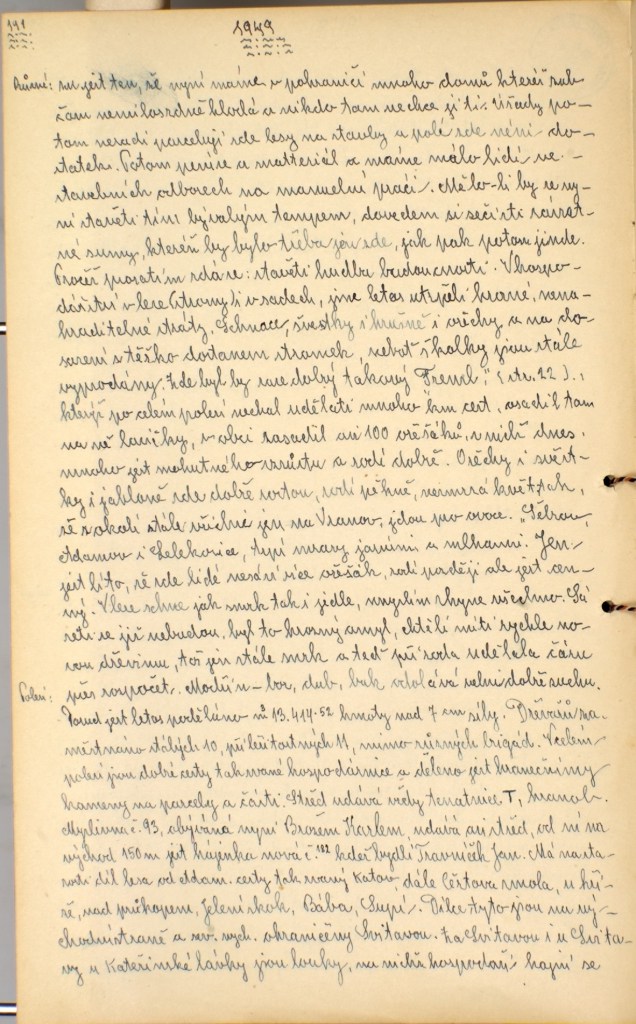 191
1949
Různé: su jest ten, že nyní máme v pohraničí mnoho domů kteréž zub
čam nemilosrdně hlodá a nikdo tam nechce jíti. Všady po-
tom neradi parcelují zde lesy na stavby a polí zde není do-
statek. Potom peníze a matteriál a máme málo lidí ve
stavebních odborech na manuelní práci. Mělo-li by se ny-
ní stavěti tímž bývalým tempem, dovedem si sečísti závrat-
né sumy, kteréž by bylo třeba jen zde, jak pak potom jinde.
Pročež prozatím zdá se: stavěti hudba budoucnosti. V hospo-
dářství v lese (stromy) i v sadech, jsme letos utrpěli hrozné, nena-
hraditelné ztráty. Schnou, švestky i hrušně i ořechy a na do-
sazení stěžko dostanem stromek, neboť školky jsou stále
vyprodány. Zde byl by zase dobrý takový „Freml" (str. 22).,
kterýž po celém polesí nechal udělati mnoho km cest, osadil tam
na ně lavičky, v obci zasadil asi 100 ořešáků, z nichž dnes
mnoho jest mohutného vzrůstu a rodí dobře. Ořechy i švest-
ky i jabloně zde dobře rostou, rodí pěkně, nezmrzá květ, tak,
že z okolí stále všichni jen na Vranov, jdou pro ovoce. „Šebrov,
Adamov i Lelekovice, trpí mrazy jarními a mlhami. Jen
jest líto, že zde lidé nesází více ořešák, rodí později ale jest cen-
ný. V lese schne jak smrk tak i jedle, myslím zhyne všechno. Sá
zeti se již nebudou, byl to hrozný omyl, chtěli míti rychle no-
vou dřevinu, tož jen stále smrk a teď příroda udělala čáru
přes rozpočet. Modřín – bor, dub, buk odolává velmi dobře suchu.
Polesí: Posud jest letos poděláno m³ 13.414·52 hmoty nad 7 cm síly. Dřevařů za-
městnáno stálých 10, příležitostných 11, mimo různých brigád. V celém
polesí jsou dobré cesty tak zvané hospodárnice a děleno jest hraničnými
kameny na parcely a části. Střed udává vždy tenatnice T, hranol.
Myslivna č. 93, obývaná nyní Brožem Karlem, udává asi střed, od ní na
východ 150 m jest hájenka nová č. 182 kdež bydlí Trávníček Jan. Má na sta-
rosti díl lesa od Adam. cesty tak zvaný Katov, dále Čertova smola, u kří-
že, nad průkopem, Jelení skok, Bába, Supí. Dílce tyto jsou na vý-
chodní straně a sev. vých. ohraničeny Svitavou. Za Svitavou i u Svita-
vy u Kateřinské lávky jsou louky, na nichž hospodaří hajní se